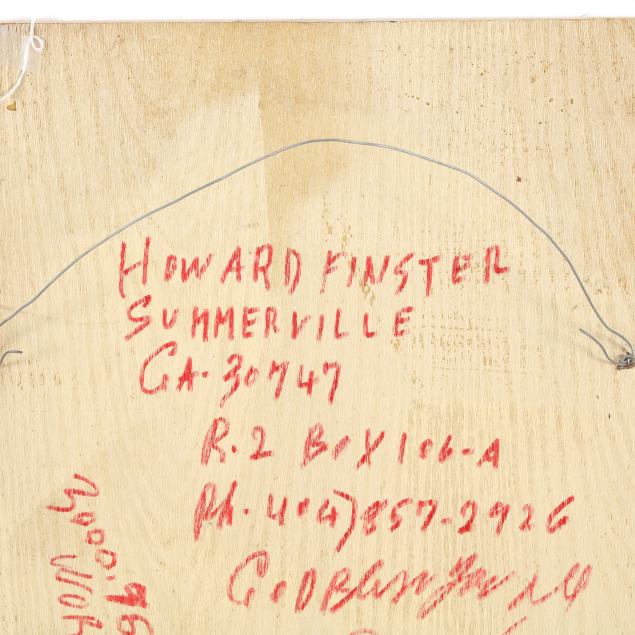 HOWARD FINSTER
SUMMERVILLE
GA. 30747
R.2 BOX 106-A
Ph. 404)857-2926
GOD BLESS You all